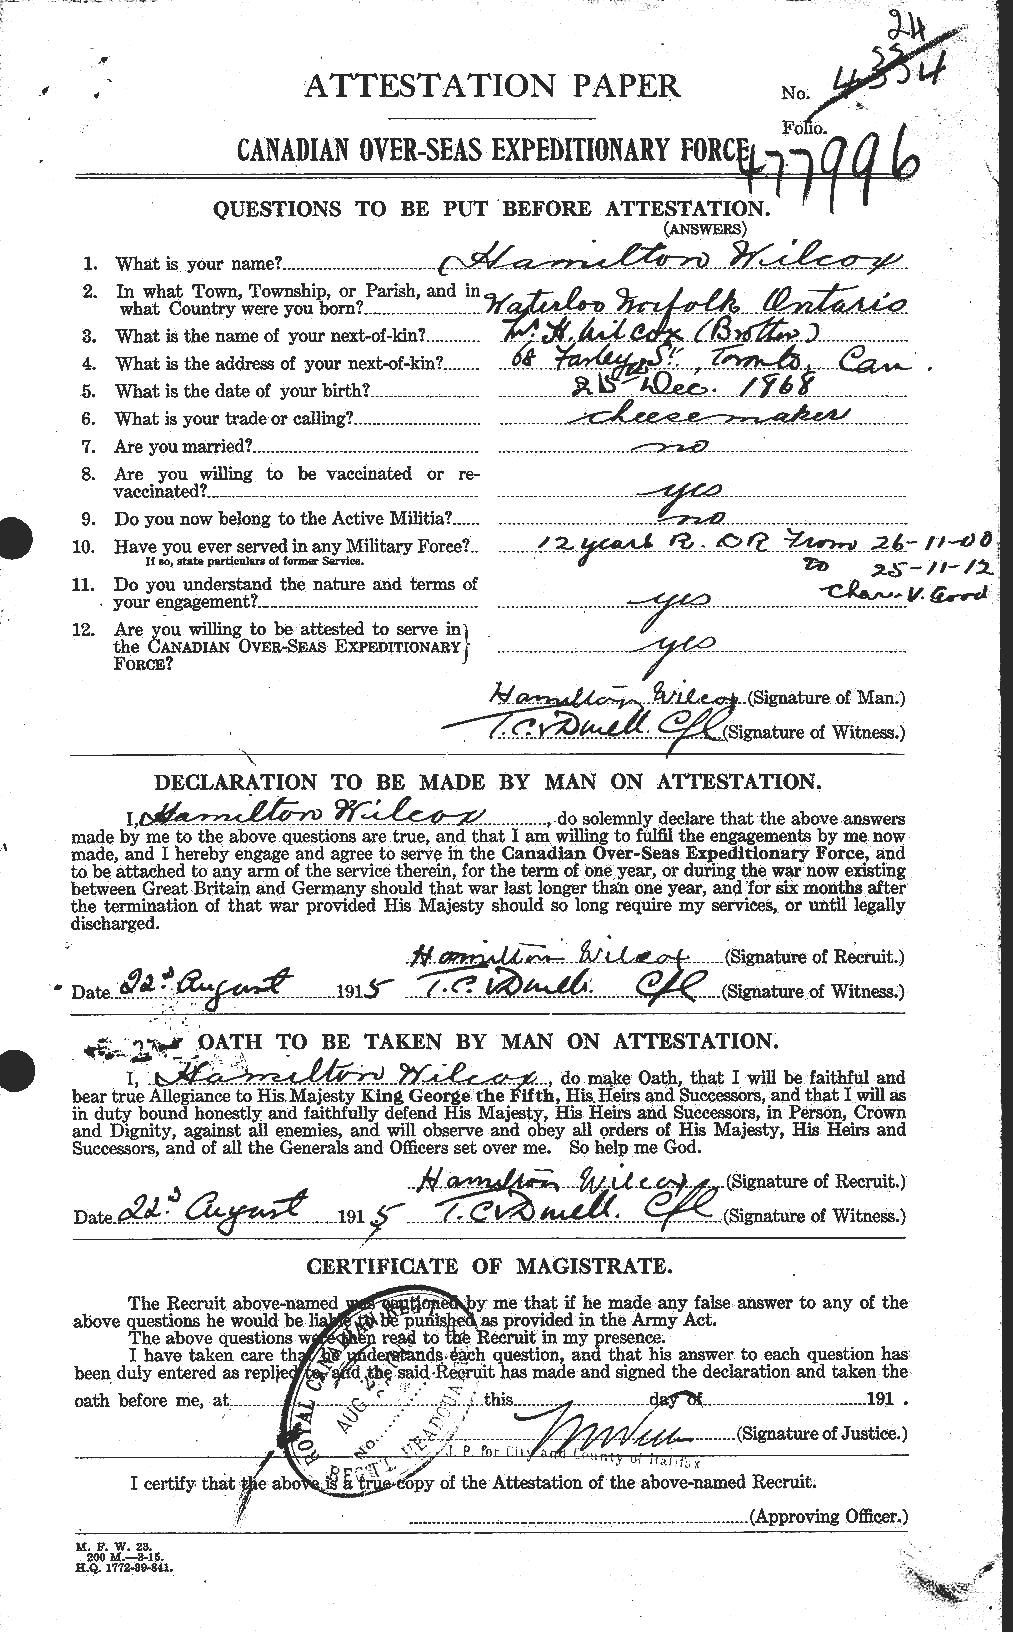 24
4334
ATTESTATION PAPER
No.
Folio.
CANADIAN OVER-SEAS EXPEDITIONARY FORCE
477996
QUESTIONS TO BE PUT BEFORE ATTESTATION.
(ANSWERS)
1. What is your name? Hamilton Wilcox
2. In what Town, Township, or Parish, and in
what Country were you born? Waterloo Norfolk Ontario
3. What is the name of your next-of-kin? H. Wilcox (Brother)
4. What is the address of your next-of-kin? 68 Farley St., Toronto, Can.
5. What is the date of your birth? 25 Dec. 1868
6. What is your trade or calling? cheese maker
7. Are you married? no
8. Are you willing to be vaccinated or re-
vaccinated? yes
9. Do you now belong to the Active Militia? no
10. Have you ever served in any Military Force? 12 years R. From 26-11-00
If so, state particulars of former Service. to 25-11-12
11. Do you understand the nature and terms of
your engagement? yes
Chas. V. Good
12. Are you willing to be attested to serve in
the CANADIAN OVER-SEAS EXPEDITIONARY
FORCE? yes
Hamilton Wilcox (Signature of Man.)
T. C. (Signature of Witness.)
DECLARATION TO BE MADE BY MAN ON ATTESTATION.
I, Hamilton Wilcox, do solemnly declare that the above answers
made by me to the above questions are true, and that I am willing to fulfil the engagements by me now
made, and I hereby engage and agree to serve in the Canadian Over-Seas Expeditionary Force, and
to be attached to any arm of the service therein, for the term of one year, or during the war now existing
between Great Britain and Germany should that war last longer than one year, and for six months after
the termination of that war provided His Majesty should so long require my services, or until legally
discharged.
Hamilton Wilcox (Signature of Recruit.)
Date 22d August 1915 T. C. (Signature of Witness.)
OATH TO BE TAKEN BY MAN ON ATTESTATION.
I, Hamilton Wilcox, do make Oath, that I will be faithful and
bear true Allegiance to His Majesty King George the Fifth, His Heirs and Successors, and that I will as
in duty bound honestly and faithfully defend His Majesty, His Heirs and Successors, in Person, Crown
and Dignity, against all enemies, and will observe and obey all orders of His Majesty, His Heirs and
Successors, and of all the Generals and Officers set over me. So help me God.
Hamilton Wilcox (Signature of Recruit.)
Date 22d August 1915 T. C. (Signature of Witness.)
CERTIFICATE OF MAGISTRATE.
The Recruit above-named was cautioned by me that if he made any false answer to any of the
above questions he would be liable to be punished as provided in the Army Act.
The above questions were then read to the Recruit in my presence.
I have taken care that he understands each question, and that his answer to each question has
been duly entered as replied to, and the said Recruit has made and signed the declaration and taken the
oath before me, at this day of 191 .
ROYAL CANADIAN REGT
AUG
No.
REGTL HEADQUA
(Signature of Justice.)
J. P. for City and County of Halifax
I certify that the above is a true copy of the Attestation of the above-named Recruit.
(Approving Officer.)
M. F. W. 23.
200 M.—3-15.
H.Q. 1772-39-841.